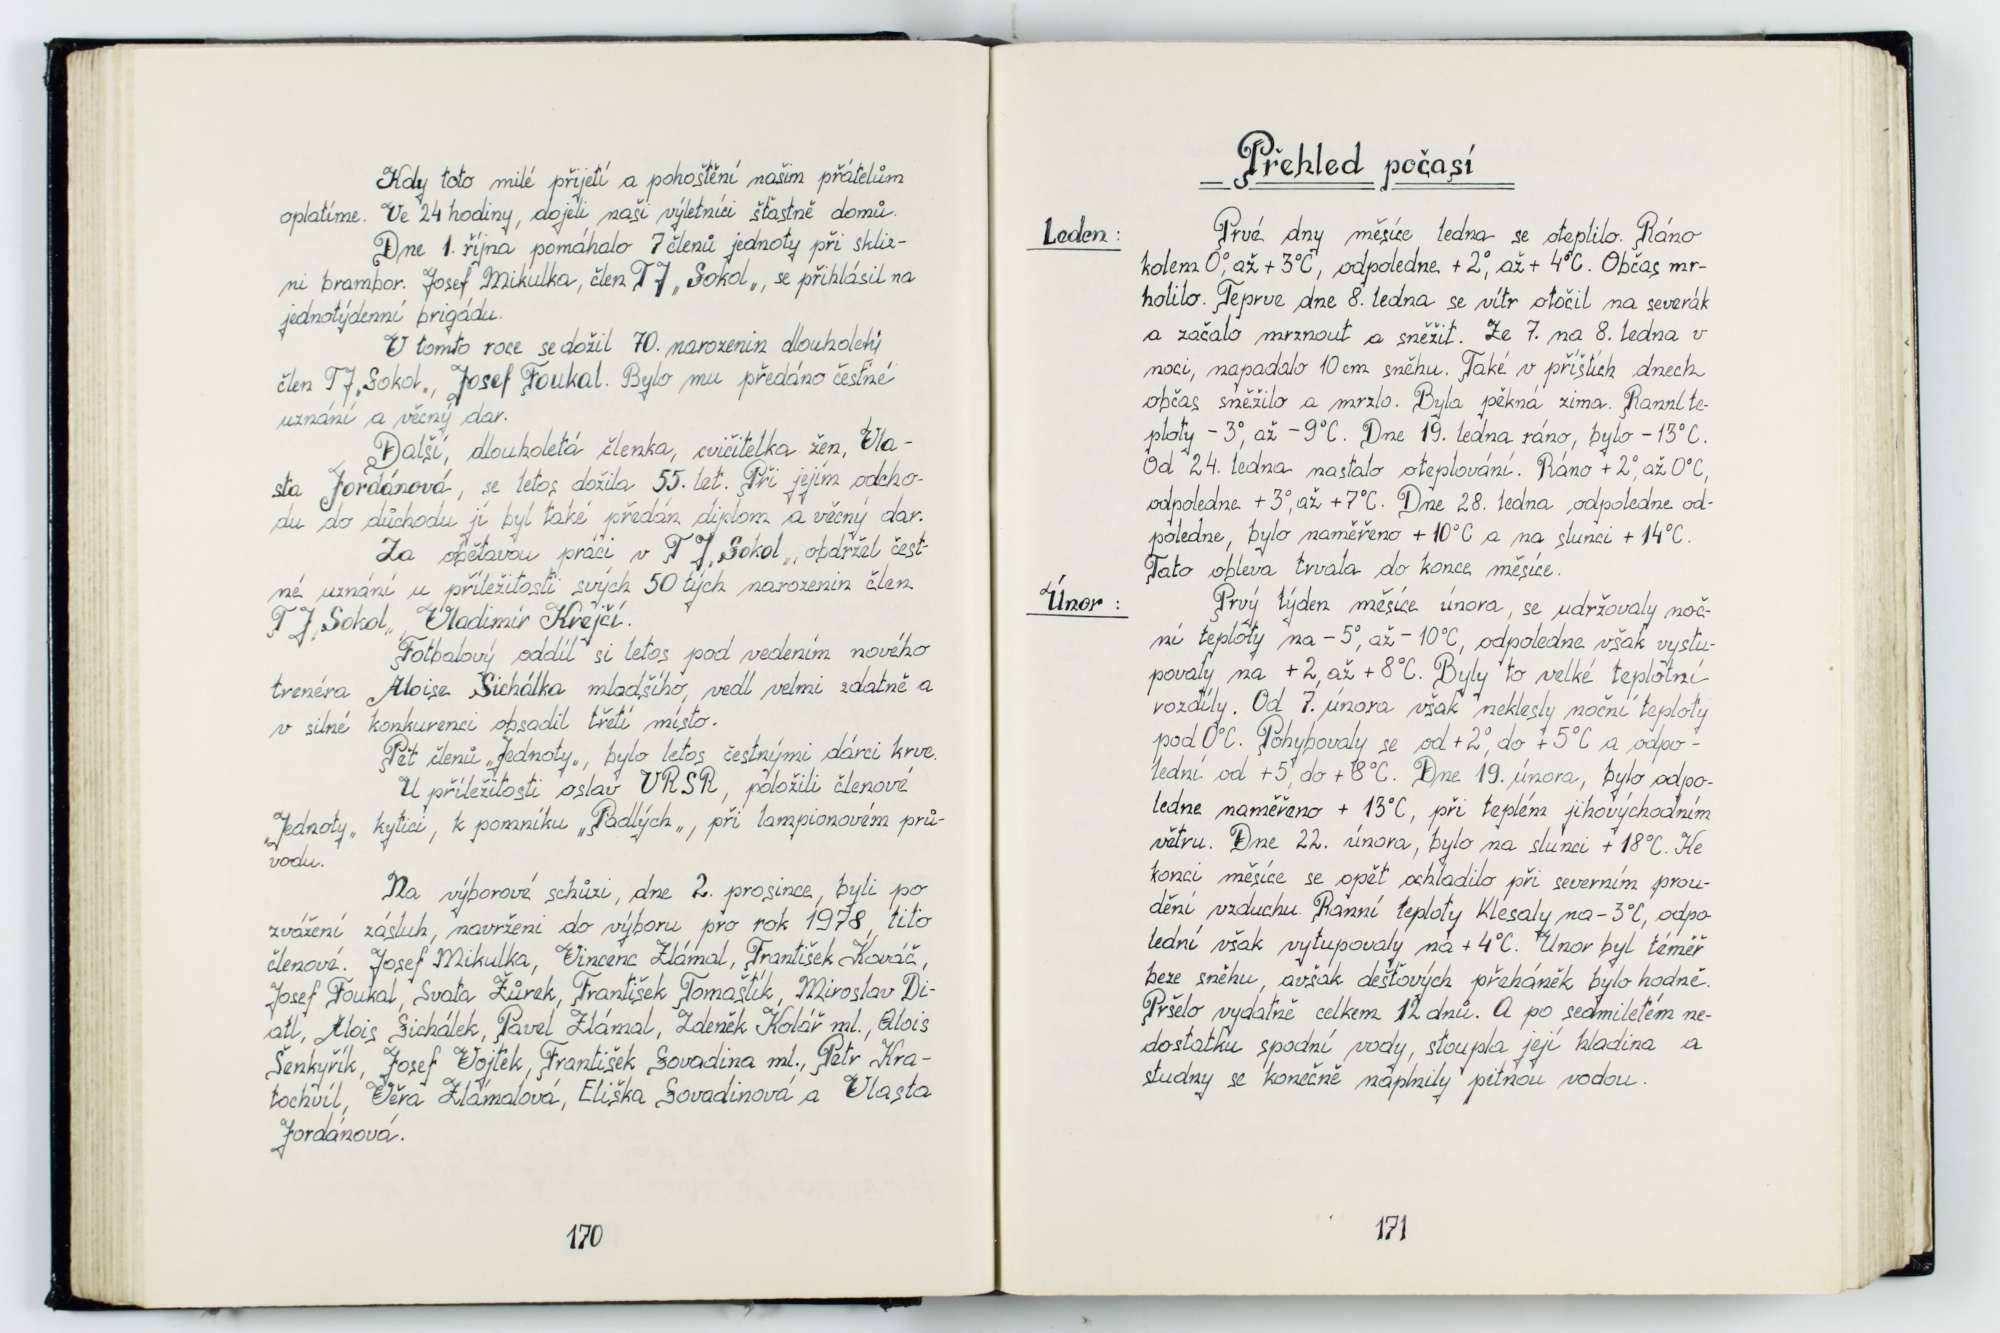 Kdy toto milé přijetí a pohoštění našim přátelům
oplatíme. Ve 24 hodiny, dojeli naši výletníci šťastně domů.
Dne 1. října pomáhalo 7 členů jednoty při skliz-
ni brambor. Josef Mikulka, člen TJ „Sokol„, se přihlásil na
jednotýdenní brigádu.
V tomto roce se dožil 70. narozenin dlouholetý
člen TJ „Sokol„, Josef Foukal. Bylo mu předáno čestné
uznání a věcný dar.
Další, dlouholetá členka, cvičitelka žen, Vla-
sta Jordánová, se letos dožila 55. let. Při jejím odcho-
du do důchodu jí byl také předán diplom a věcný dar.
Za obětavou práci v TJ „Sokol„, obdržel čest-
né uznání u příležitosti svých 50 tých narozenin člen
TJ „Sokol„, Vladimír Krejčí.
Fotbalový oddíl si letos pod vedením nového
trenéra Aloise Sichálka mladšího, vedl velmi zdatně a
v silné konkurenci obsadil třetí místo.
Pět členů „Jednoty„, bylo letos čestnými dárci krve.
U příležitosti oslav VŘSR, položili členové
„Jednoty„ kytici, k pomníku „Padlých„, při lampionovém prů-
vodu.
Na výborové schůzi, dne 2. prosince, byli po
zvážení zásluh, navrženi do výboru pro rok 1978, tito
členové. Josef Mikulka, Vincenc Zlámal, František Kováč,
Josef Foukal, Svata Žůrek, František Tomaštík, Miroslav Di-
atl, Alois Sichálek, Pavel Zlámal, Zdeněk Kolář ml., Alois
Šenkyřík, Josef Vojtek, František Sovadina ml., Petr Kra-
tochvíl, Věra Zlámalová, Eliška Sovadinová a Vlasta
Jordánová.
170
Přehled počasí
Leden: Prvé dny měsíce ledna se oteplilo. Ráno
kolem 0°, až + 3°C, odpoledne + 2°, až + 4°C. Občas mr-
holilo. Teprve dne 8. ledna se vítr otočil na severák
a začalo mrznout a sněžit. Ze 7. na 8. ledna v
noci, napadalo 10 cm sněhu. Také v příštích dnech
občas sněžilo a mrzlo. Byla pěkná zima. Ranní te-
ploty - 3°, až - 9°C. Dne 19. ledna ráno, bylo - 13°C.
Od 24. ledna nastalo oteplování. Ráno + 2°, až 0°C,
odpoledne + 3°, až + 7°C. Dne 28. ledna odpoledne od-
poledne, bylo naměřeno + 10°C a na slunci + 14°C.
Tato obleva trvala do konce měsíce.
Únor: Prvý týden měsíce února, se udržovaly noč-
ní teploty na - 5°, až - 10°C, odpoledne však vystu-
povaly na + 2, až + 8°C. Byly to velké teplotní
rozdíly. Od 7. února však neklesly noční teploty
pod 0°C. Pohybovaly se od + 2°, do + 5°C a odpo-
lední od + 5°, do + 8°C. Dne 19. února, bylo odpo-
ledne naměřeno + 13°C, při teplém jihovýchodním
větru. Dne 22. února, bylo na slunci + 18°C. Ke
konci měsíce se opět ochladilo při severním prou-
dění vzduchu. Ranní teploty klesaly na - 3°C, odpo
lední však vytupovaly na + 4°C. Únor byl téměř
beze sněhu, avšak dešťových přeháněk bylo hodně.
Pršelo vydatně celkem 12 dnů. A po sedmiletém ne-
dostatku spodní vody, stoupla její hladina a
studny se konečně naplnily pitnou vodou.
171